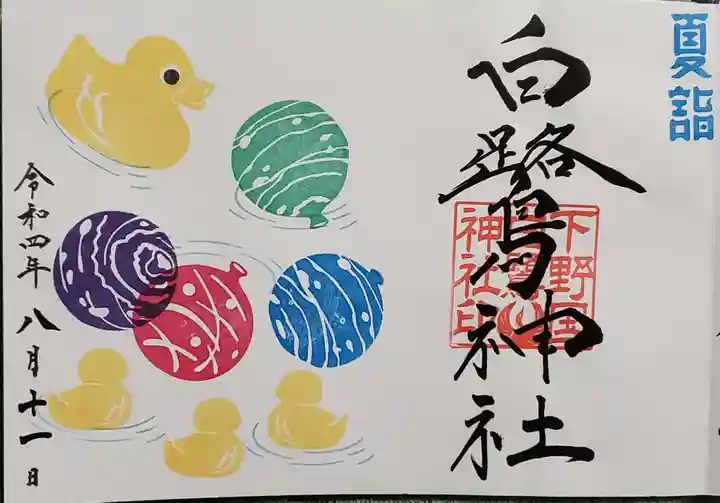 夏詣
白鷺神社
下野国
白鷺
神社印
令和四年 八月十一日